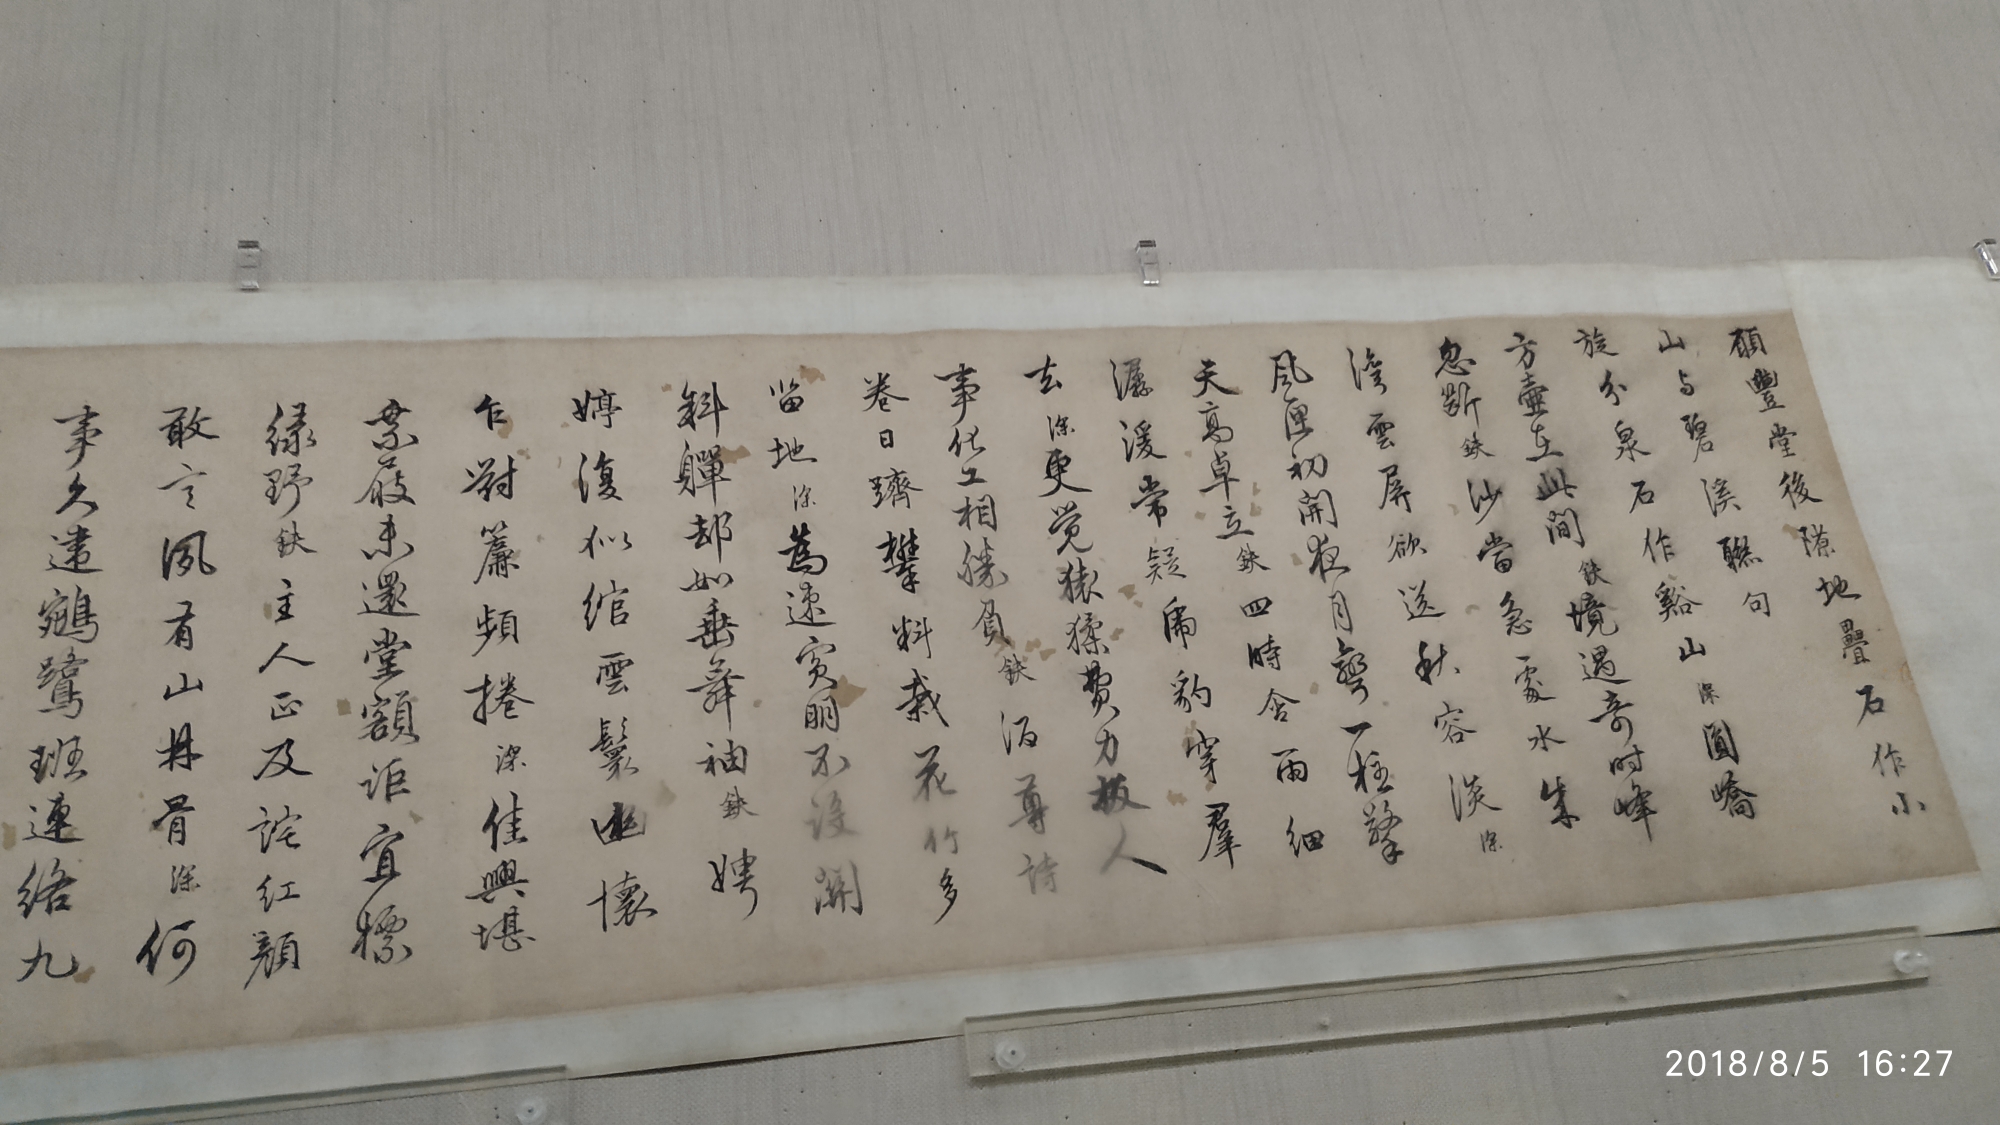 頤豐堂後隙地疊石作小
山与碧溪聯句
旋分泉石作谿山深圓嶠
方壺在此間鈇境遇奇時峰
忽斷鈇沙當急處水生
漪雲屏欲送秋容淡深
風匣初開夜月彎一柱擎
天高卓立鈇四時含雨細
潺湲常疑虎豹穿群
去深更覺猿猱費力扳人
事化工相勝負鈇酒尊詩
卷日躋攀料栽花竹多
留地深為速賓朋不設關
斜嚲却如垂舞袖鈇娉
婷復似綰雲鬟幽懷
乍對簾頻捲深佳興堪
乘屐未還堂額詎宜標
緑野鈇主人正及詫紅顏
敢言夙有山林骨深何
事久違鵷鷺班連絡九
2018/8/5 16:27